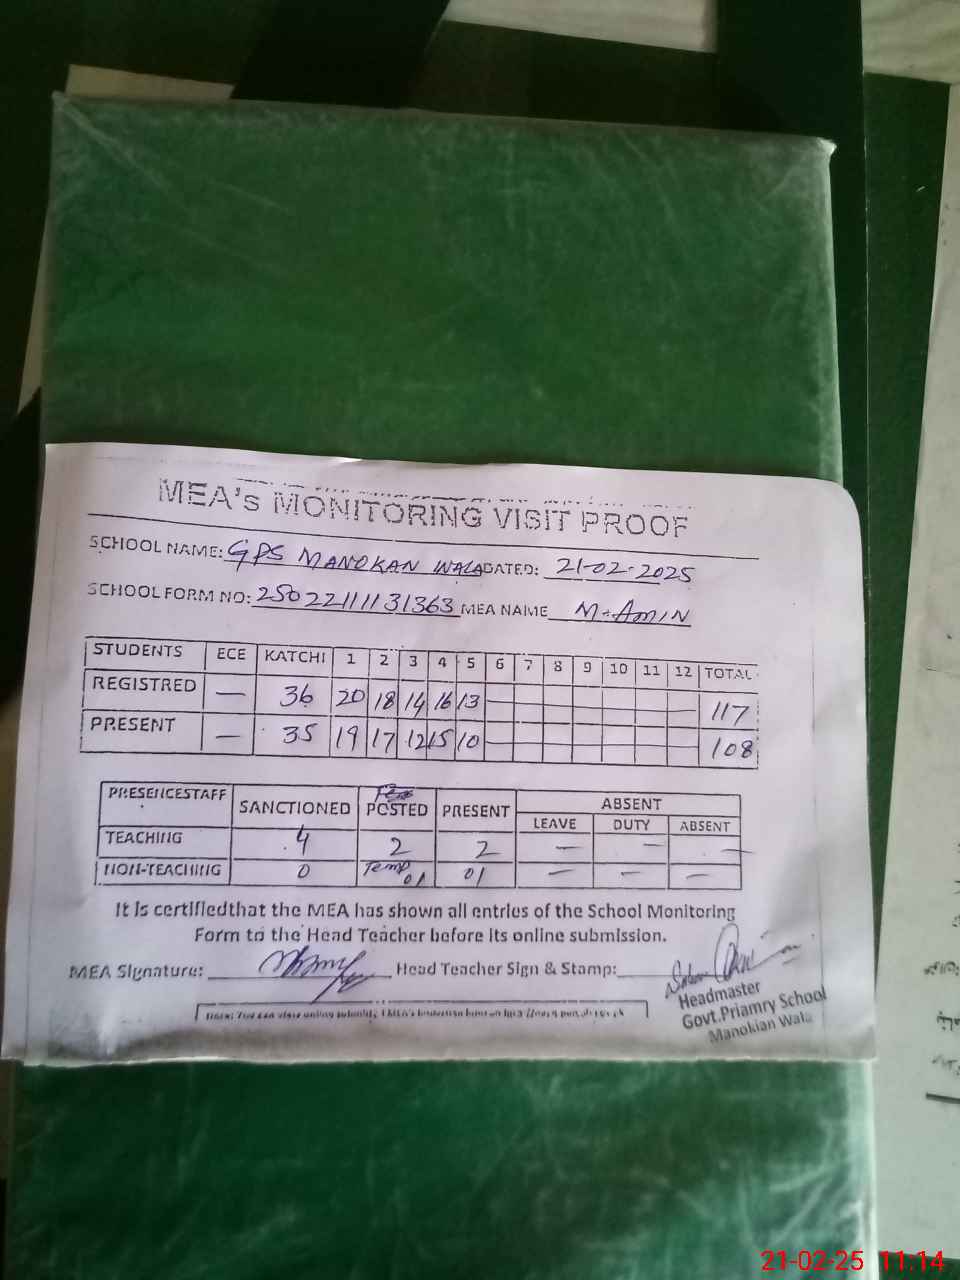 MEA's MONITORING VISIT PROOF
SCHOOL NAME: GPS MANOKAN WALA DATED: 21-02-2025
SCHOOL FORM NO: 25022111131363 MEA NAME M. AMIN
STUDENTS ECE KATCHI 1 2 3 4 5 6 7 8 9 10 11 12 TOTAL
REGISTRED — 36 20 18 14 16 13 117
PRESENT — 35 19 17 12 15 10 108
PRESENCESTAFF SANCTIONED POSTED PRESENT ABSENT
LEAVE DUTY ABSENT
TEACHING 4 2 2 — — —
NON-TEACHING 0 Temp 01 01 — — —
It is certifiedthat the MEA has shown all entries of the School Monitoring
Form to the Head Teacher before its online submission.
MEA Signature: Head Teacher Sign & Stamp:
Headmaster
Govt.Priamry School
Manokian Wala
21-02-25 11:14